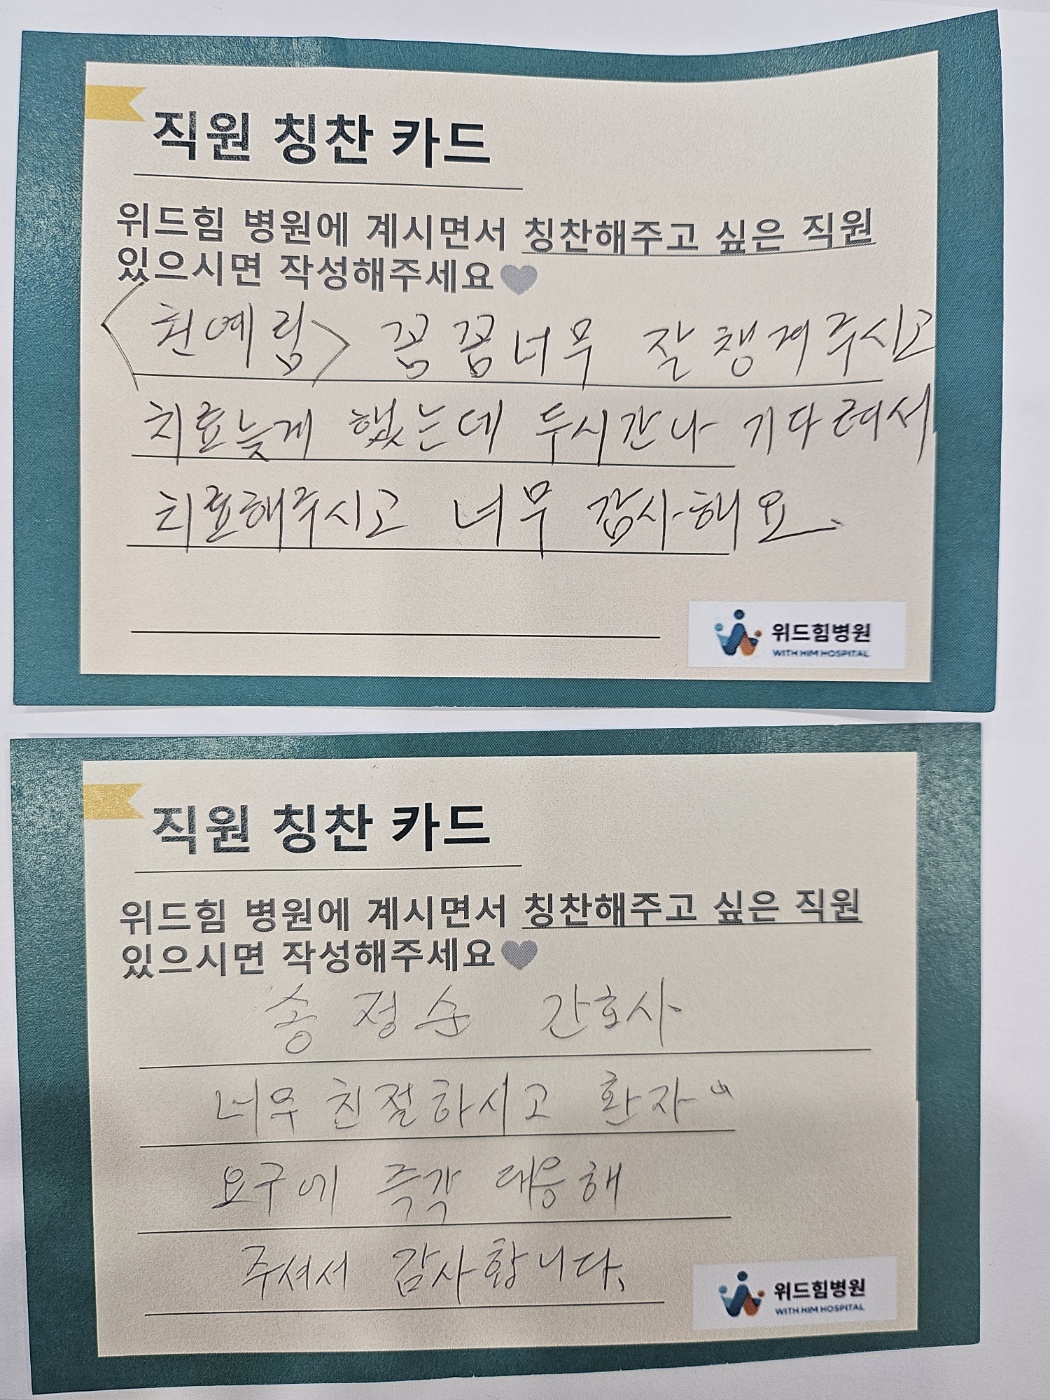 직원 칭찬 카드
위드힘 병원에 계시면서 칭찬해주고 싶은 직원
있으시면 작성해주세요
<천예림> 꼼꼼너무 잘 챙겨주시고
치료늦게 했는데 두시간나 기다려서
치료해주시고 너무 감사해요.
위드힘병원
WITH HIM HOSPITAL
직원 칭찬 카드
위드힘 병원에 계시면서 칭찬해주고 싶은 직원
있으시면 작성해주세요
송정순 간호사
너무 친절하시고 환자
요구에 즉각 대응해
주셔서 감사합니다.
위드힘병원
WITH HIM HOSPITAL